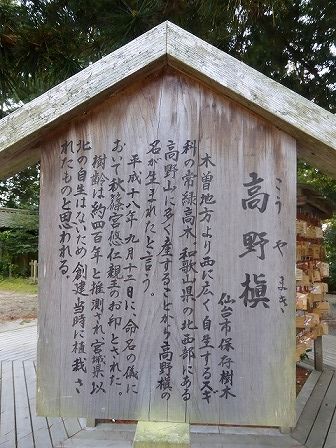 こうやまき
高野槇
仙台市保存樹木
木曽地方より西に広く自生するスギ
科の常緑高木、和歌山県の北西部にある
高野山に多く産することから高野槇の
名が生まれたと言う。
平成十八年九月十二日に、命名の儀に
おいて秋篠宮悠仁親王のお印とされた。
樹齢は約四百年と推測され、宮城県以
北の自生はないため、創建当時に植栽さ
れたものと思われる。